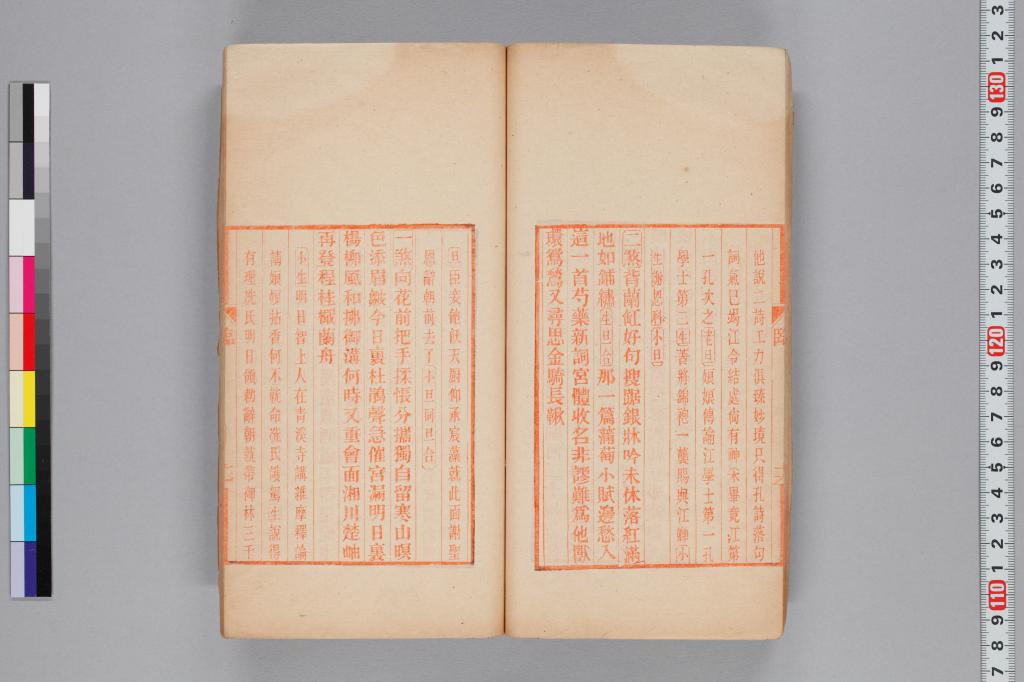 他說二詩工力俱臻妙境只得孔詩落句
詞氣已竭江令結處尚有神未畢竟江第
一孔次之老旦娘娘傳諭江學士第一孔
學士第二生苦將錦袍一襲賜與江郎小
生謝恩科小旦
二煞背蘭缸好句搜踞銀牀吟未休落紅滿
地如鋪繡生旦合那一篇蒲萄小賦邊愁入
這一首芍藥新詞宮體收名非謬難爲他獸
環鴛鴦又尋思金騎長楸
旦臣妾飽飫天廚仰承宸藻就此面謝聖
恩辭朝前去了小旦同旦合
一煞向花前把手揉悵分攜獨自留寒山暝
色添眉皺今日裏杜鵑聲急催宮漏明日裏
楊柳風和拂御溝何時又重會面湘川楚岫
再發程桂檝蘭舟
小生明日智上人在青溪寺講維摩釋論
請娘娘拈香何不就命冼氏護駕生說得
有理冼氏明日領勅辭朝就帶御林三千
臨